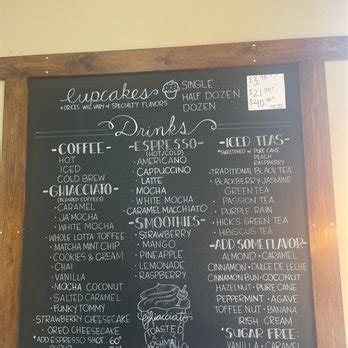 Cupcakes
* PRICES WILL VARY w/ SPECIALTY FLAVORS
SINGLE
HALF DOZEN
DOZEN
$3.75
$21.00
$40.00
Drinks
- COFFEE -
HOT
ICED
COLD BREW
- GHIACCIATO -
(BLENDED COFFEES)
- CARAMEL
- JA'MOCHA
- WHITE MOCHA
- WHOLE LOTTA TOFFEE
- MATCHA MINT CHIP
- COOKIES & CREAM
- CHAI
- VANILLA
- MOCHA COCONUT
- SALTED CARAMEL
- FUNKY TOMMY
- STRAWBERRY CHEESECAKE
- OREO CHEESECAKE
* ADD ESPRESSO SHOT 60¢
- ESPRESSO -
(HOT/COLD)
- AMERICANO
- CAPPUCCINO
- LATTE
- MOCHA
- WHITE MOCHA
- CARAMEL MACCHIATO
- SMOOTHIES -
- STRAWBERRY
- MANGO
- PINEAPPLE
- LEMONADE
- RASPBERRY
Ghiacciato
TASTE
- ICED TEAS -
* SWEETENED w/ PURE CANE
PEACH
RASPBERRY
- TRADITIONAL BLACK TEA
- BLACKBERRY JASMINE
GREEN TEA
- PASSION TEA
- PURPLE RAIN
- HICK'S GREEN TEA
- HIBISCUS TEA
- ADD SOME FLAVOR -
ALMOND · CARAMEL
CINNAMON · DULCE DE LECHE
CINNAMON BUN · COCONUT
HAZELNUT · PURE CANE
PEPPERMINT · AGAVE
TOFFEE NUT · BANANA
IRISH CREAM
* SUGAR FREE *
VANILLA · CARAMEL